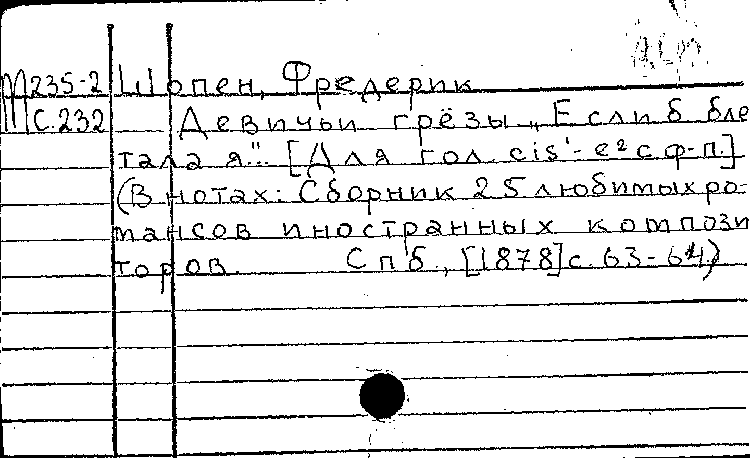 М 235-2 Шопен, Фредерик
С.232 Девичьи грёзы „Если б бле
тала я". [Для гол. cis¹-e² с ф-п.]
(В нотах: Сборник 25 любимых ро-
мансов иностранных компози
торов. Спб., [1878] с. 63-64)